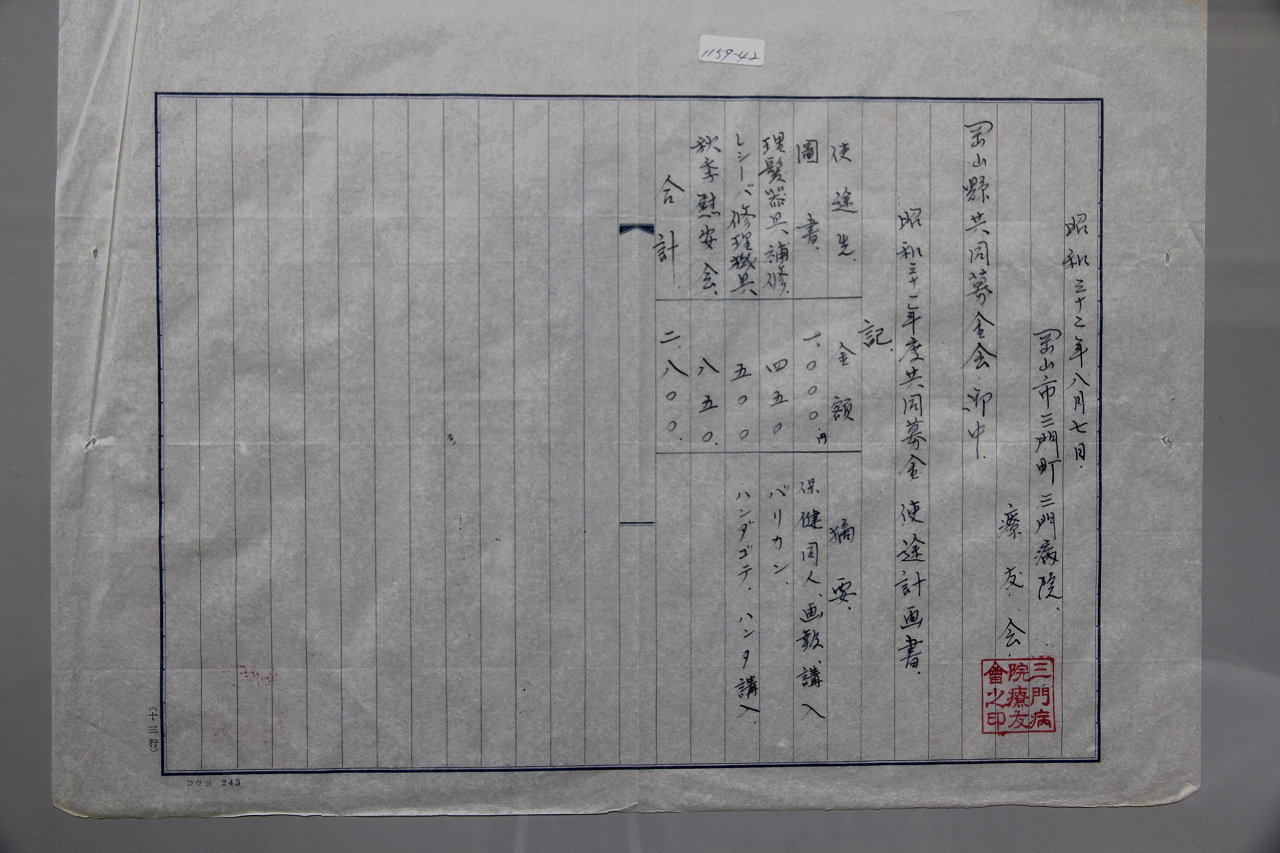 1159-42
昭和三十二年八月七日.
岡山市三門町三門病院.
療友会.
三門病院療友會之印
岡山縣共同募金会御中.
昭和三十一年度共同募金使途計画書.
記.
使途先. 金額 摘要.
圖書. 一、〇〇〇.円 保健同人、画報、講入
理髪器具補修. 四五〇 バリカン、
レシーバ修理機具 五〇〇 ハンダゴテ.ハンダ講入.
秋季慰安会. 八五〇.
合計. 二、八〇〇.
(十三行)
コクヨ 243